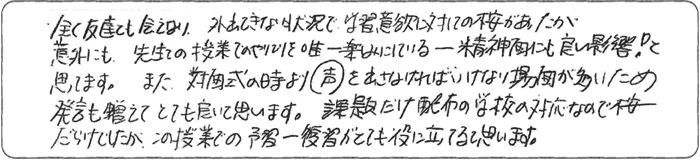 全く友達とも会えない、外出できない状況で学習意欲に対しての不安があったが
意外にも、先生との授業でのやりとりを唯一楽しみにしている―精神面にも良い影響!と
思ってます。また、対面式の時より声を出さなければいけない場面が多いため
発言も増えてとても良いと思います。課題だけ配布の学校の対応なので不安
だらけでしたが、この授業での予習―復習がとても役に立ってると思います。